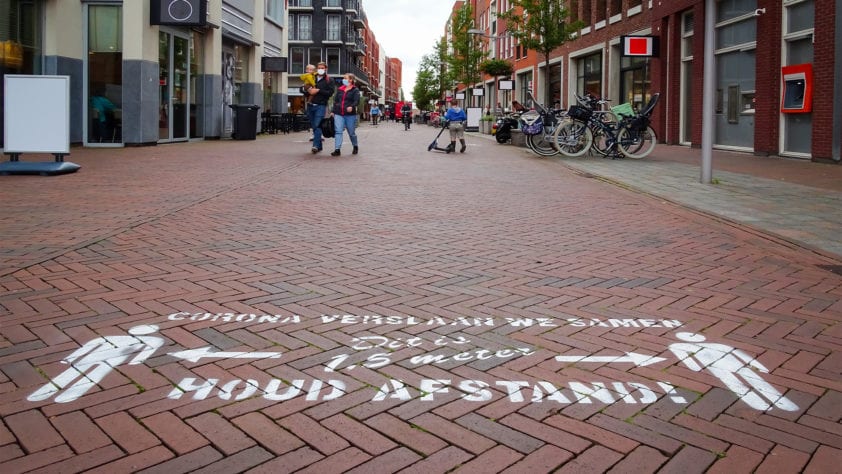 CORONA VERSLAAN WE SAMEN
Dit is
1,5 meter
HOUD AFSTAND!